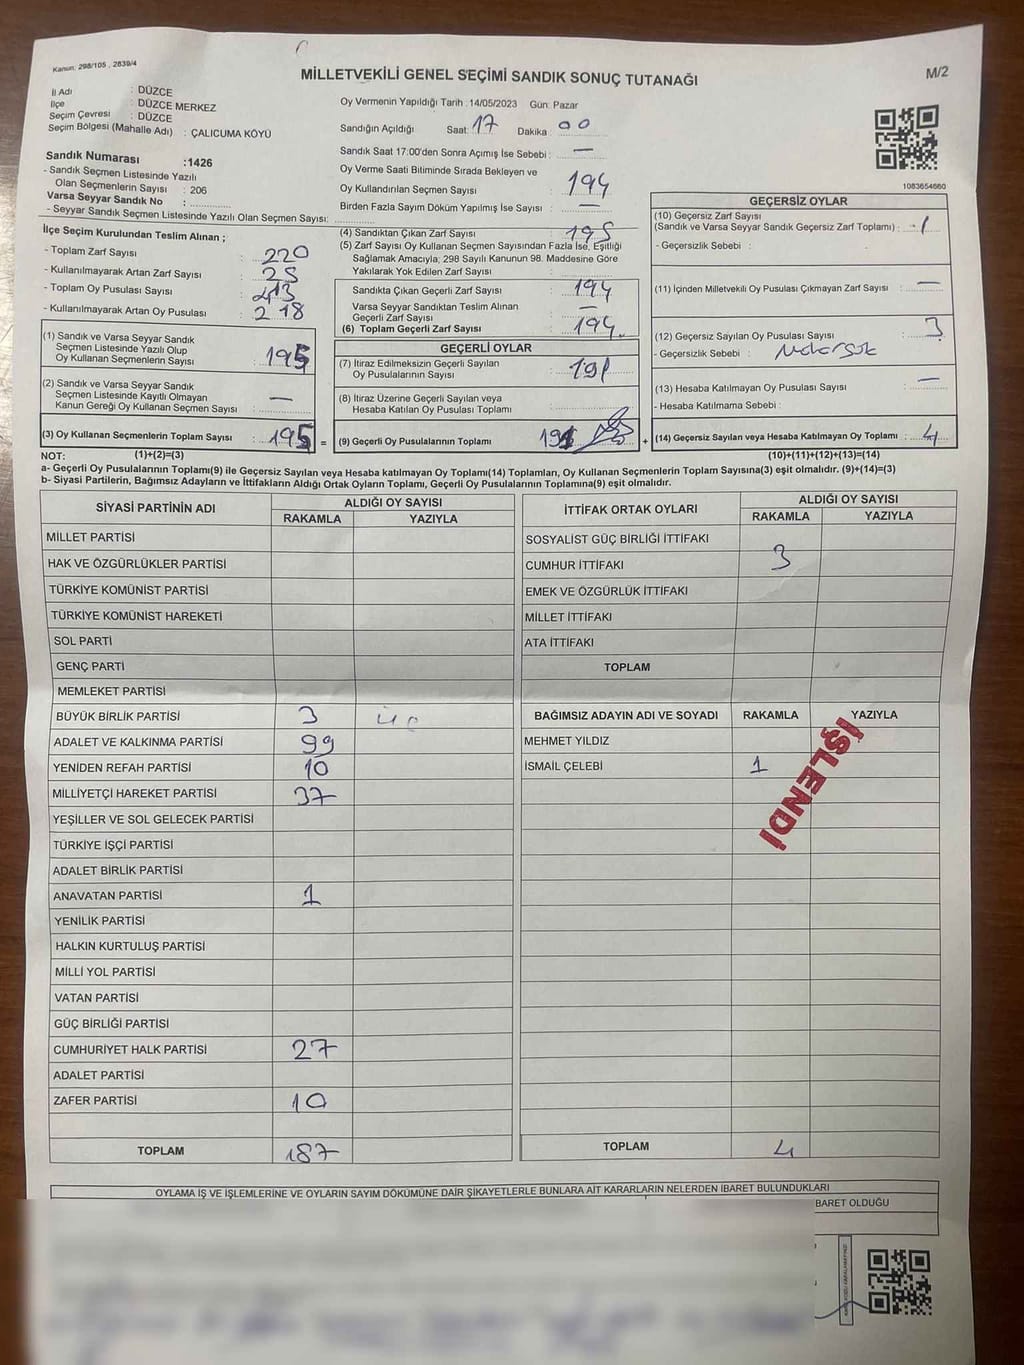 Kanun: 298/105 , 2839/4
MİLLETVEKİLİ GENEL SEÇİMİ SANDIK SONUÇ TUTANAĞI
M/2
İl Adı : DÜZCE
İlçe : DÜZCE MERKEZ
Seçim Çevresi : DÜZCE
Seçim Bölgesi (Mahalle Adı) : ÇALICUMA KÖYÜ
Sandık Numarası :1426
- Sandık Seçmen Listesinde Yazılı
Olan Seçmenlerin Sayısı : 206
Varsa Seyyar Sandık No :
- Seyyar Sandık Seçmen Listesinde Yazılı Olan Seçmen Sayısı:
İlçe Seçim Kurulundan Teslim Alınan ;
- Toplam Zarf Sayısı : 220
- Kullanılmayarak Artan Zarf Sayısı : 25
- Toplam Oy Pusulası Sayısı : 413
- Kullanılmayarak Artan Oy Pusulası : 218
(1) Sandık ve Varsa Seyyar Sandık
Seçmen Listesinde Yazılı Olup
Oy Kullanan Seçmenlerin Sayısı : 195
(2) Sandık ve Varsa Seyyar Sandık
Seçmen Listesinde Kayıtlı Olmayan
Kanun Gereği Oy Kullanan Seçmen Sayısı : —
(3) Oy Kullanan Seçmenlerin Toplam Sayısı : 195 =
Oy Vermenin Yapıldığı Tarih :14/05/2023 Gün: Pazar
Sandığın Açıldığı Saat: 17 Dakika 00
Sandık Saat 17:00'den Sonra Açımış İse Sebebi : —
Oy Verme Saati Bitiminde Sırada Bekleyen ve
Oy Kullandırılan Seçmen Sayısı : 194
Birden Fazla Sayım Döküm Yapılmış İse Sayısı : —
(4) Sandıktan Çıkan Zarf Sayısı : 195
(5) Zarf Sayısı Oy Kullanan Seçmen Sayısından Fazla İse, Eşitliği
Sağlamak Amacıyla; 298 Sayılı Kanunun 98. Maddesine Göre
Yakılarak Yok Edilen Zarf Sayısı :
Sandıkta Çıkan Geçerli Zarf Sayısı : 194
Varsa Seyyar Sandıktan Teslim Alınan
Geçerli Zarf Sayısı : —
(6) Toplam Geçerli Zarf Sayısı : 194
GEÇERLİ OYLAR
(7) İtiraz Edilmeksizin Geçerli Sayılan
Oy Pusulalarının Sayısı : 191
(8) İtiraz Üzerine Geçerli Sayılan veya
Hesaba Katılan Oy Pusulası Toplamı :
(9) Geçerli Oy Pusulalarının Toplamı 191 +
1083654660
GEÇERSİZ OYLAR
(10) Geçersiz Zarf Sayısı
(Sandık ve Varsa Seyyar Sandık Geçersiz Zarf Toplamı) : 1
- Geçersizlik Sebebi :
(11) İçinden Milletvekili Oy Pusulası Çıkmayan Zarf Sayısı : —
(12) Geçersiz Sayılan Oy Pusulası Sayısı : 3
- Geçersizlik Sebebi :
(13) Hesaba Katılmayan Oy Pusulası Sayısı : —
- Hesaba Katılmama Sebebi :
(14) Geçersiz Sayılan veya Hesaba Katılmayan Oy Toplamı : 4
NOT: (1)+(2)=(3)
(10)+(11)+(12)+(13)=(14)
a- Geçerli Oy Pusulalarının Toplamı(9) ile Geçersiz Sayılan veya Hesaba katılmayan Oy Toplamı(14) Toplamları, Oy Kullanan Seçmenlerin Toplam Sayısına(3) eşit olmalıdır. (9)+(14)=(3)
b- Siyasi Partilerin, Bağımsız Adayların ve İttifakların Aldığı Ortak Oyların Toplamı, Geçerli Oy Pusulalarının Toplamına(9) eşit olmalıdır.
SİYASİ PARTİNİN ADI ALDIĞI OY SAYISI
RAKAMLA YAZIYLA
MİLLET PARTİSİ
HAK VE ÖZGÜRLÜKLER PARTİSİ
TÜRKİYE KOMÜNİST PARTİSİ
TÜRKİYE KOMÜNİST HAREKETİ
SOL PARTİ
GENÇ PARTİ
MEMLEKET PARTİSİ
BÜYÜK BİRLİK PARTİSİ 3 üç
ADALET VE KALKINMA PARTİSİ 99
YENİDEN REFAH PARTİSİ 10
MİLLİYETÇİ HAREKET PARTİSİ 37
YEŞİLLER VE SOL GELECEK PARTİSİ
TÜRKİYE İŞÇİ PARTİSİ
ADALET BİRLİK PARTİSİ
ANAVATAN PARTİSİ 1
YENİLİK PARTİSİ
HALKIN KURTULUŞ PARTİSİ
MİLLİ YOL PARTİSİ
VATAN PARTİSİ
GÜÇ BİRLİĞİ PARTİSİ
CUMHURİYET HALK PARTİSİ 27
ADALET PARTİSİ
ZAFER PARTİSİ 10
TOPLAM 187
İTTİFAK ORTAK OYLARI ALDIĞI OY SAYISI
RAKAMLA YAZIYLA
SOSYALİST GÜÇ BİRLİĞİ İTTİFAKI
CUMHUR İTTİFAKI 3
EMEK VE ÖZGÜRLÜK İTTİFAKI
MİLLET İTTİFAKI
ATA İTTİFAKI
TOPLAM
BAĞIMSIZ ADAYIN ADI VE SOYADI RAKAMLA YAZIYLA
MEHMET YILDIZ
İSMAİL ÇELEBİ 1
İŞLENDİ
TOPLAM 4
OYLAMA İŞ VE İŞLEMLERİNE VE OYLARIN SAYIM DÖKÜMÜNE DAİR ŞİKAYETLERLE BUNLARA AİT KARARLARIN NELERDEN İBARET BULUNDUKLARI
BARET OLDUĞU